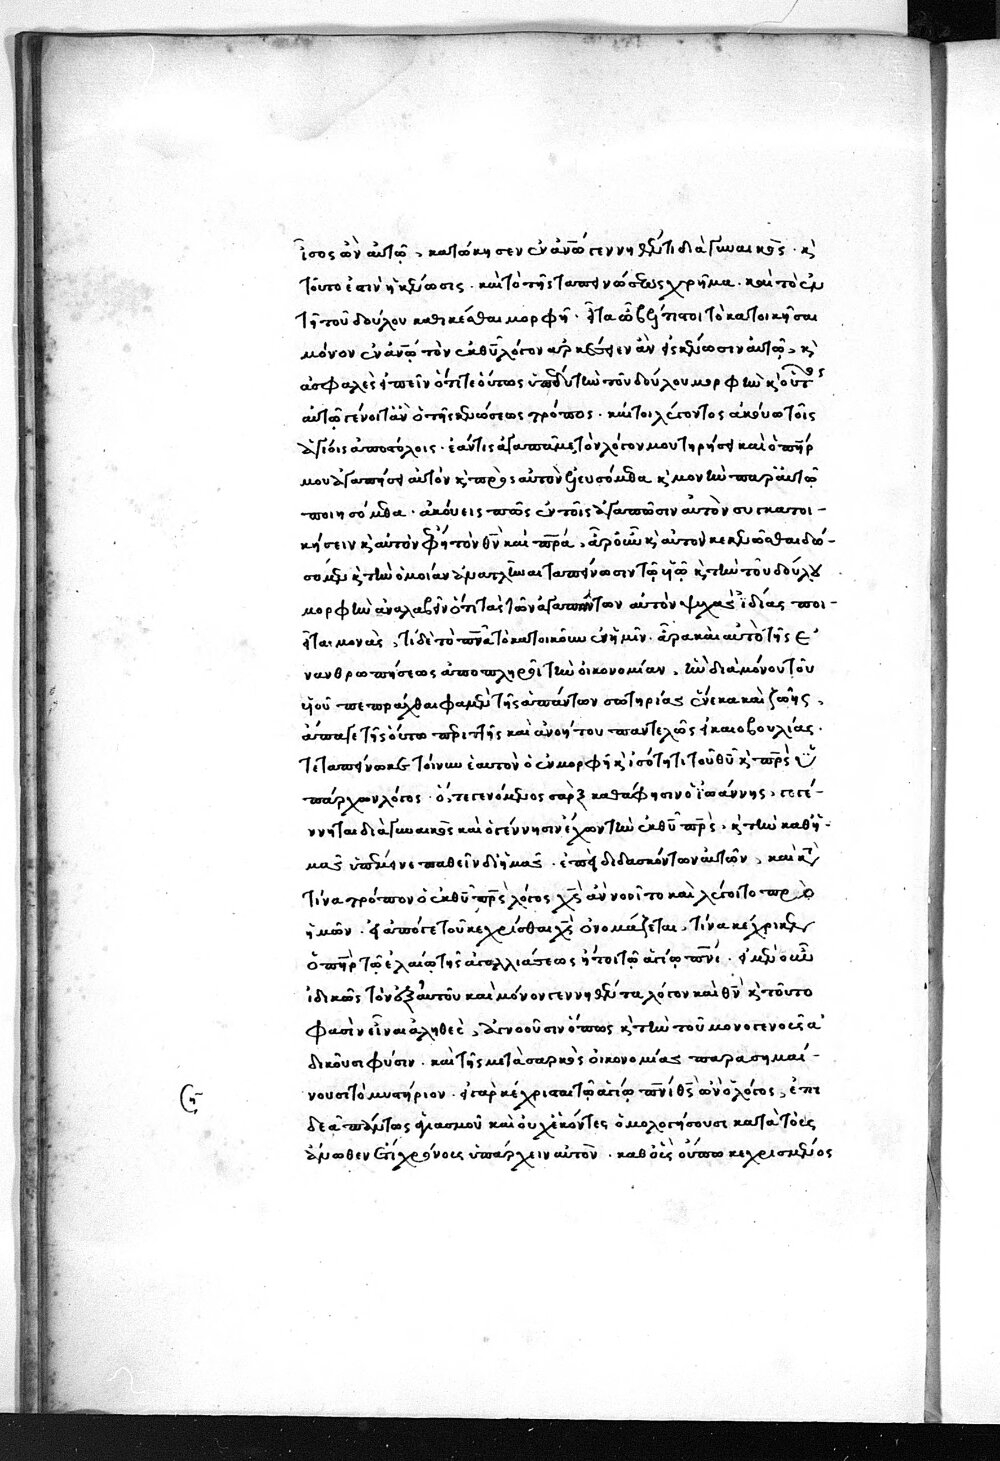 ἴσος ὢν αὐτῶ, κατώκησεν ἐν ἀνῶ γεννηθέντι διὰ γυναικὸς· κ̀
τοῦτο ἐστὶν ἡ κένωσις· καὶ τὸ τῆς ταπεινώσεως χρῆμα· καὶ τὸ ἐν
τῆ τοῦ δούλου καθικέσθαι μορφῆ· εἶτα πῶς τὸ κατοικῆσαι
μόνον ἐν ἀνῶ τὸν ἐκ θυ λόγον ἀρκέσειεν ἂν εἰς κένωσιν αὐτῶ, κ̀
ἀσφαλὲς εἰπεῖν ὅτι τε οὕτως ὑπέδυ τὴν τοῦ δούλου μορφὴν κ̀ οὗτος
αὐτῶ γένοιτ ἂν ὁ τῆς κενώσεως τρόπος· καίτοι λέγοντος ἀκούω τοῖς
ἁγίοις ἀποστόλοις· ἐάν τις ἀγαπᾶ με τὸν λόγον μου τηρήσει καὶ ὁ πηρ
μου ἀγαπήσει αὐτὸν κ̀ πρὸς αὐτὸν ἐλευσόμεθα κ̀ μονὴν παρ αὐτῶ
ποιησόμεθα· ἀκούεις πῶς ἐν τοῖς ἀγαπῶσιν αὐτὸν συγκατοι-
κήσειν κ̀ αὐτὸν ἔφη τὸν θν καὶ πρα, ἆρ οὖν κ̀ αὐτὸν κεκενῶσθαι δώ-
σομεν κ̀ τὴν ὁμοίαν ἀνατλῆναι ταπείνωσιν τῶ υἱῶ κ̀ τὴν τοῦ δούλου
μορφὴν ἀναλαβεῖν ὅτι τὰς τῶν ἀγαπώντων αὐτὸν ψυχὰς ἰδίας ποι-
εῖται μονὰς, τί δὲ τὸ πνα τὸ κατοικοῦν ἐν ἡμῖν· ἆρα καὶ αὐτὸ τῆς ἐ
νανθρωπήσεως ἀποπληροῖ τὴν οἰκονομίαν, ἣν διὰ μόνου τοῦ
υἱοῦ πεπράχθαι φαμὲν τῆς ἁπάντων σωτηρίας ἕνεκα καὶ ζωῆς,
ἄπαγε τῆς οὕτω περιττῆς καὶ ἀνοήτου παντελῶς εἰκαιοβουλίας·
τεταπείνωκε τοίνυν ἑαυτὸν ὁ ἐν μορφῆ κ̀ ἰσότητι τοῦ θυ κ̀ πρς ὑ
πάρχων λόγος· ὅτε γενόμενος σὰρξ καθά φησιν ὁ ἰωάννης, γεγέ-
ννηται διὰ γυναικὸς καὶ ὁ γέννησιν ἔχων τὴν ἐκ θυ πρς, κ̀ τὴν καθ ἡ-
μας ὑπέμεινε παθεῖν δι ἡμᾶς· ἐπεὶ διδασκόντων αὐτῶν, καὶ κατὰ
τίνα τρόπον ὁ ἐκ θυ πρς λόγος χς ἂν νοοῖτο καὶ λέγοιτο πρὸ
ἡμῶν· εἰ ἀπό γε τοῦ κεχρίσθαι χς ὀνομάζεται, τίνα κέχρικεν
ὁ πηρ τῶ ἐλαίω τῆς ἀγαλλιάσεως ἤτοι τῶ ἁγίω πνι· εἰ μὲν οὖν
ἰδικῶς τὸν ἐξ αὐτοῦ καὶ μόνον γεννηθέντα λόγον καὶ θν κ̀ τοῦτο
φασὶν εἶναι ἀληθὲς, ἀγνοοῦσιν ὅπως κ̀ τὴν τοῦ μονογενοῦς ἀ
δικοῦσι φύσιν· καὶ τῆς μετὰ σαρκὸς οἰκονομίας παρασημαί-
νουσι τὸ μυστήριον· εἰ γὰρ κέχρισται τῶ ἁγίω πνι θς ὢν ὁ λόγος, ἐπι
δεᾶ πάντως ἁγιασμοῦ καὶ οὐχ ἑκόντες ὁμολογήσουσι κατὰ τοὺς
ἄνωθεν ἔτι χρόνους ὑπάρχειν αὐτὸν· καθ οὓς οὔπω κεχρισμένος